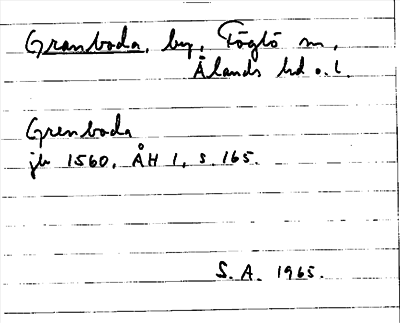 Granboda, by, Föglö sn,
Ålands hd o. l.
Grenboda
jb 1560, ÅH 1, s. 165.
S. A. 1965.